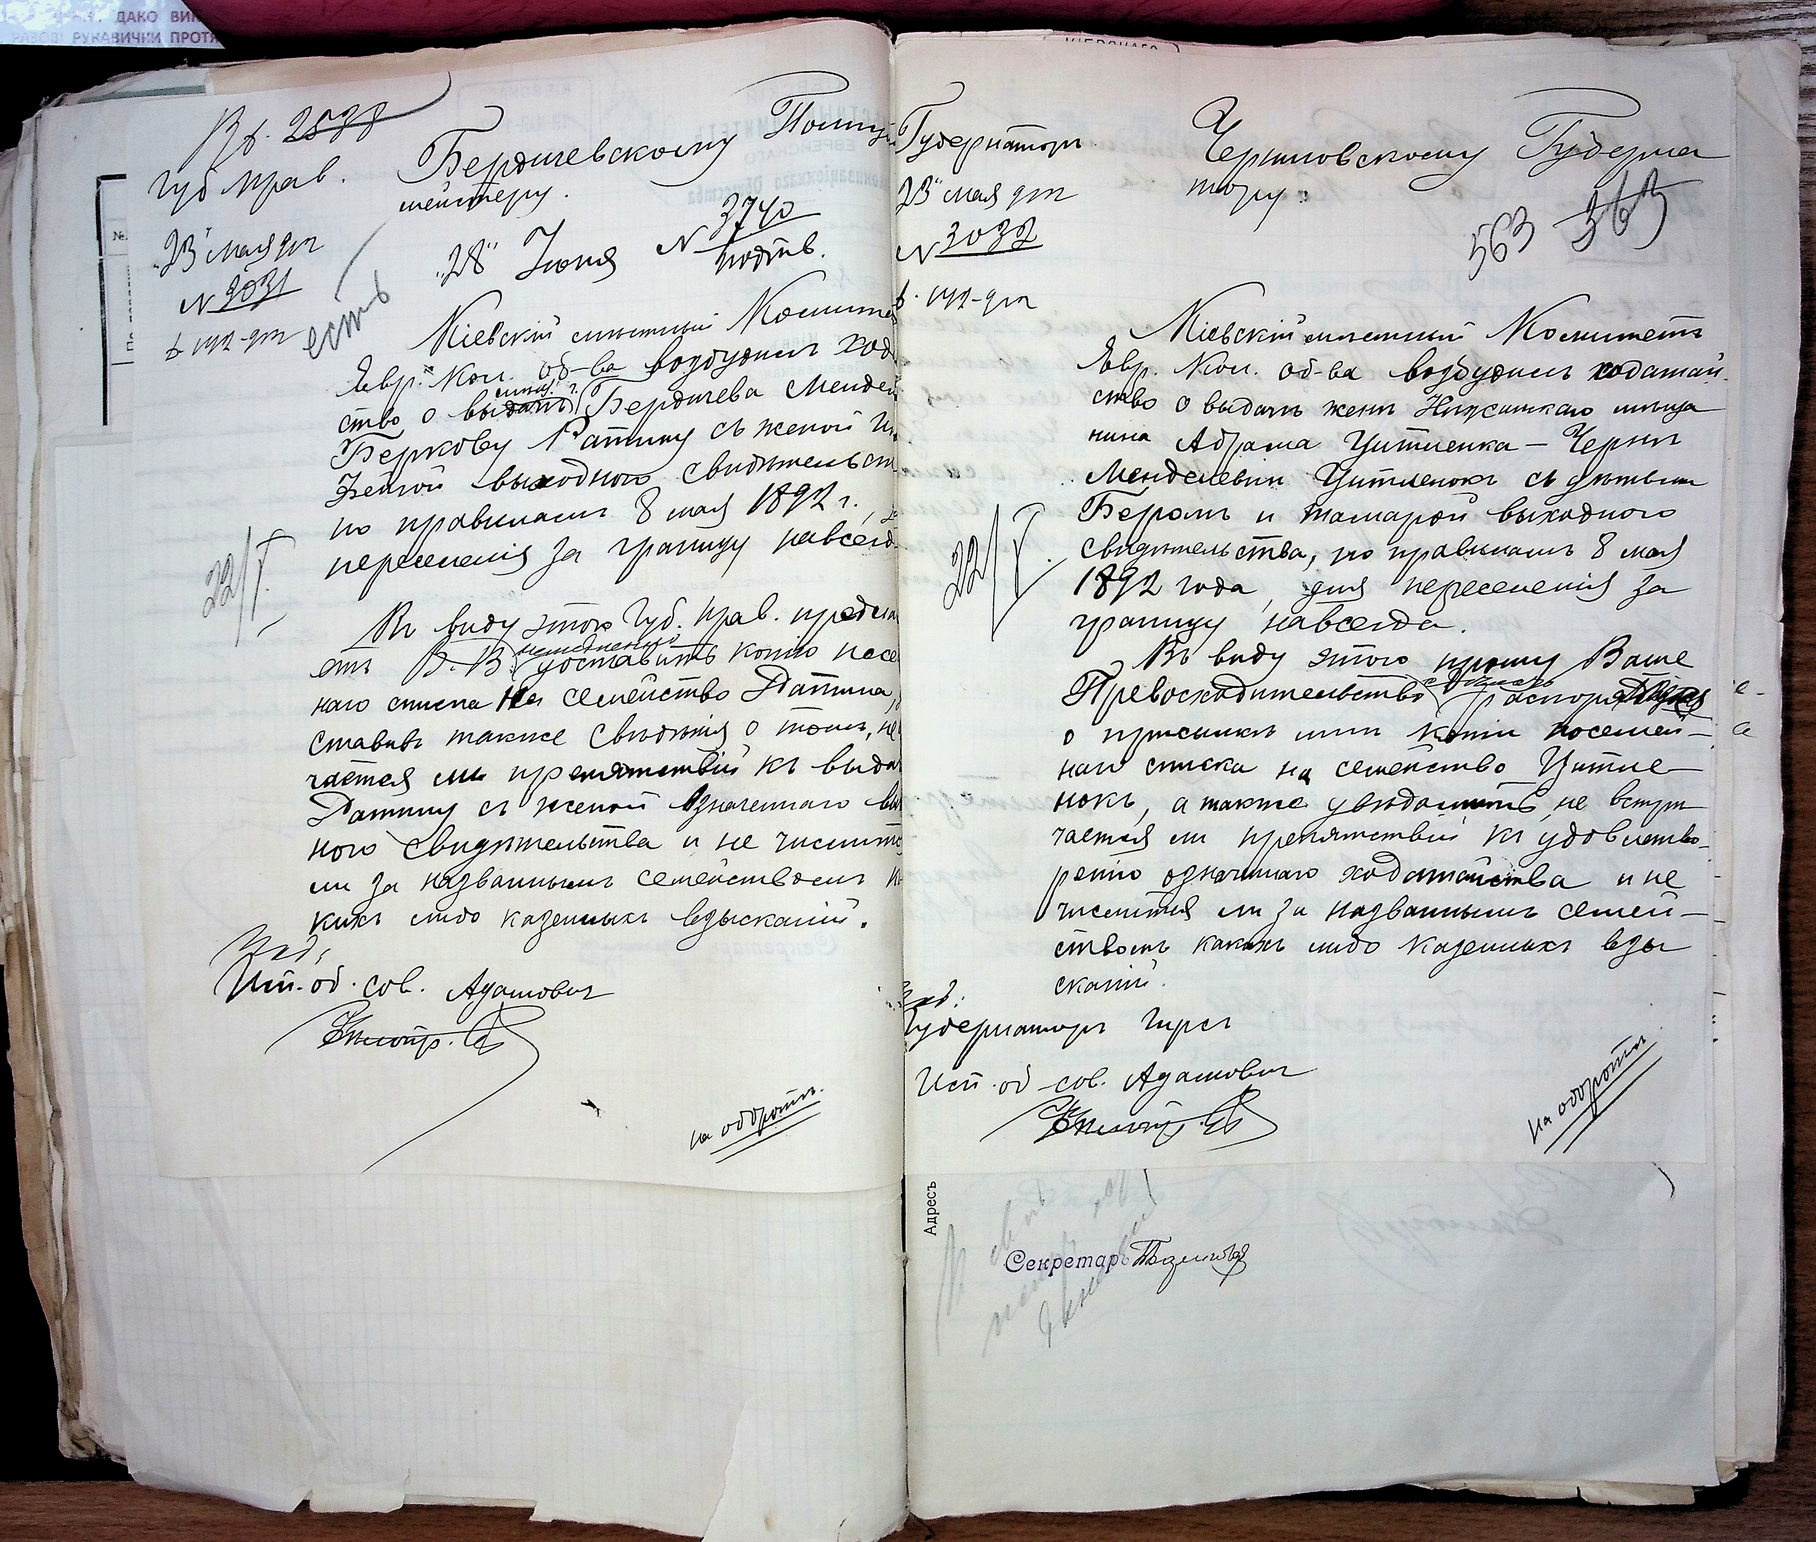 ДАКО ВИК
РАЗОВІ РУКАВИЧКИ ПРОТЯ
Вх. 2538
Губ. прав.
23" мая дня
N 3031
Бердичевскому Полиц
мейстеру.
"28" Іюня N 3740
подтв.
есть
Кіевскій мѣстный Комите
Евр. Кол. об-ва возбудилъ ход
ство о выдачѣ г. Бердичева Мендел
Беркову Ратину съ женой
выходного свидѣтельст
по правиламъ 8 мая 1892 г.,
переселенія за границу навсегд
22/V.
Въ виду этого Губ. прав. предла
етъ В. В. немедленно доставить копію посе
наго списка на семейство Ратина,
ставивъ также свѣдѣнія о томъ, не
чается ли препятствій къ выда
Ратину съ женой означеннаго вы
ного свидѣтельства и не числитс
ли за названнымъ семействомъ к
кихъ либо казенныхъ взысканій.
Исп. об. сов. Адамович
на оборотѣ.
Губернаторъ
23" мая дня
N 3032
Черниговскому Губерна
тору.
563 363
Кіевскій мѣстный Комитетъ
Евр. Кол. об-ва возбудилъ ходатай
ство о выдачѣ женѣ Нѣжинскаго мѣща
нина Абрама Цитленка – Черны
Менделевны Цитленокъ съ дѣтьми
Беромъ и Тамарой выходного
свидѣтельства, по правиламъ 8 мая
1892 года, для переселенія за
границу навсегда.
22/V.
Въ виду этого прошу Ваше
Превосходительство сдѣлать распоряженіе
о присылкѣ мнѣ копіи посемей–
наго списка на семейство Цитле
нокъ, а также увѣдомить, не встрѣ
чается ли препятствій къ удовлетво–
ренію означеннаго ходатайства и не
числится ли за названнымъ семей–
ствомъ какихъ либо казенныхъ взы
сканій.
Губернаторъ
Исп. об. сов. Адамович
на оборотѣ
Адресъ
Секретарь